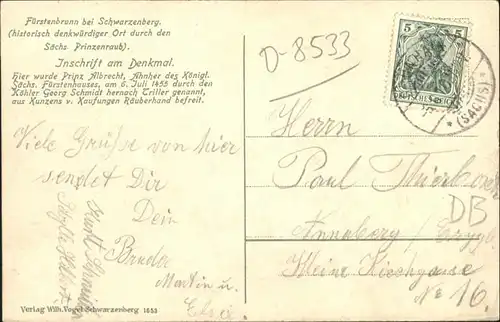 Fürstenbrunn bei Schwarzenberg.
(historisch denkwürdiger Ort durch den
Sächs. Prinzenraub).
Inschrift am Denkmal.
Hier wurde Prinz Albrecht, Ahnherr des Königl.
Sächs. Fürstenhauses, am 8. Juli 1455 durch den
Köhler Georg Schmidt hernach Triller genannt,
aus Kunzens v. Kaufungen Räuberhand befreit.
D-8533
5 5
DEUTSCHES REICH
(SACHS)
Viele Grüße von hier
sendet Dir
Dein
Bruder
Martin u.
Herrn
Paul
DB
Annaberg / Erzgb.
Kleine Kirchgasse
No 16.
Verlag Wilh. Vogel Schwarzenberg 1653